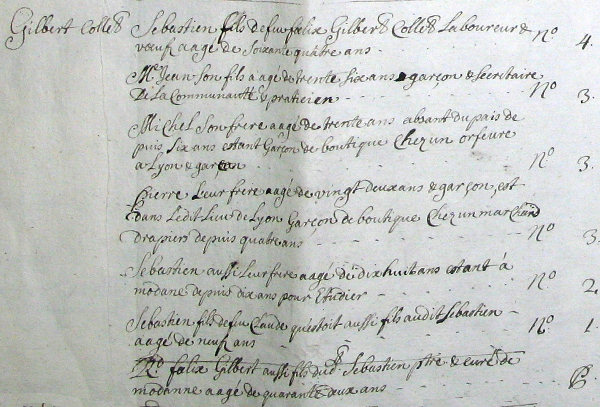 Gilbert Collet Sebastien fils de feu falix Gilbert Collet Laboureur &
vœuf aagé de Soixante quatre ans - No 4.
Mre Jean Son fils aagé de trente Six ans garçon & Secretaire
De La Communauté & praticien No 3.
Michel Son frere aagé de trente ans absant du pais de
puis Six ans estant Garçon de boutique Chez un orfeure
a Lyon & garçon No 3.
Pierre Leur frere aagé de vingt deux ans & garçon, est
dans Ledit Lieu de Lyon Garçon de boutique Chez un marchand
drapier depuis quatre ans No 3.
Sebastien aussi Leur frere aagé de dix huit ans estant à
modane depuis dix ans pour Etudier No 2.
Sebastien fils de feu Claude qu'estoit aussi fils audit Sebastien
aagé de neuf ans No 1.
Rd falix Gilbert aussi fils dud Sebastien ptre & curé de
modanne aagé de quarante aux ans